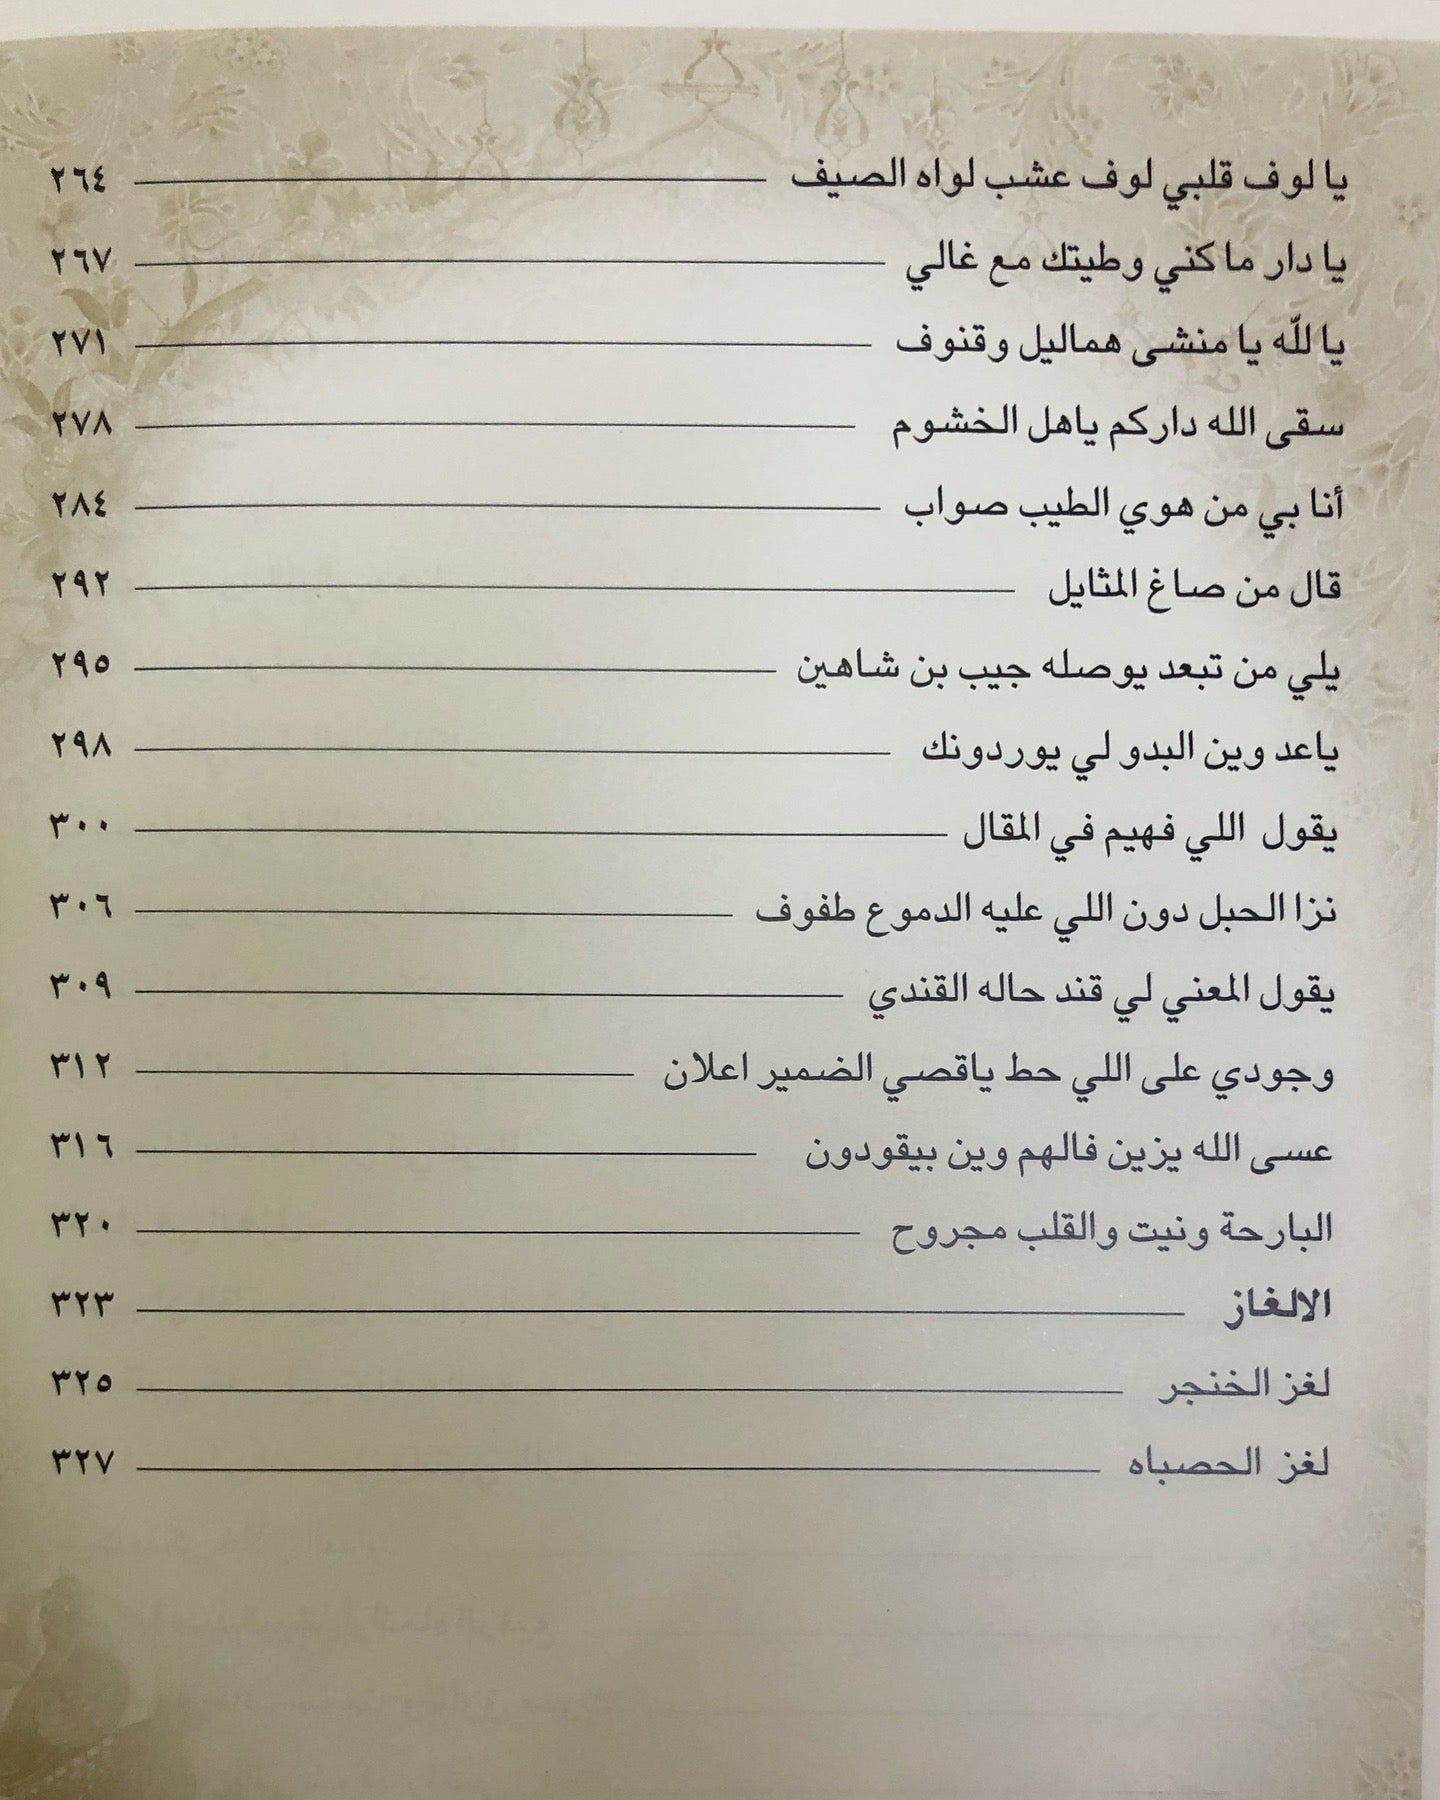 يا لوف قلبي لوف عشب لواه الصيف ٢٦٤
يا دار ماكني وطيتك مع غالي ٢٦٧
يا للّه يا منشى هماليل وقنوف ٢٧١
سقى الله داركم ياهل الخشوم ٢٧٨
أنا بي من هوي الطيب صواب ٢٨٤
قال من صاغ المثايل ٢٩٢
يلي من تبعد يوصله جيب بن شاهين ٢٩٥
ياعد وين البدو لي يوردونك ٢٩٨
يقول اللي فهيم في المقال ٣٠٠
نزا الحبل دون اللي عليه الدموع طفوف ٣٠٦
يقول المعني لي قند حاله القندي ٣٠٩
وجودي على اللي حط ياقصي الضمير اعلان ٣١٢
عسى الله يزين فالهم وين بيقودون ٣١٦
البارحة ونيت والقلب مجروح ٣٢٠
الالغاز ٣٢٣
لغز الخنجر ٣٢٥
لغز الحصباه ٣٢٧